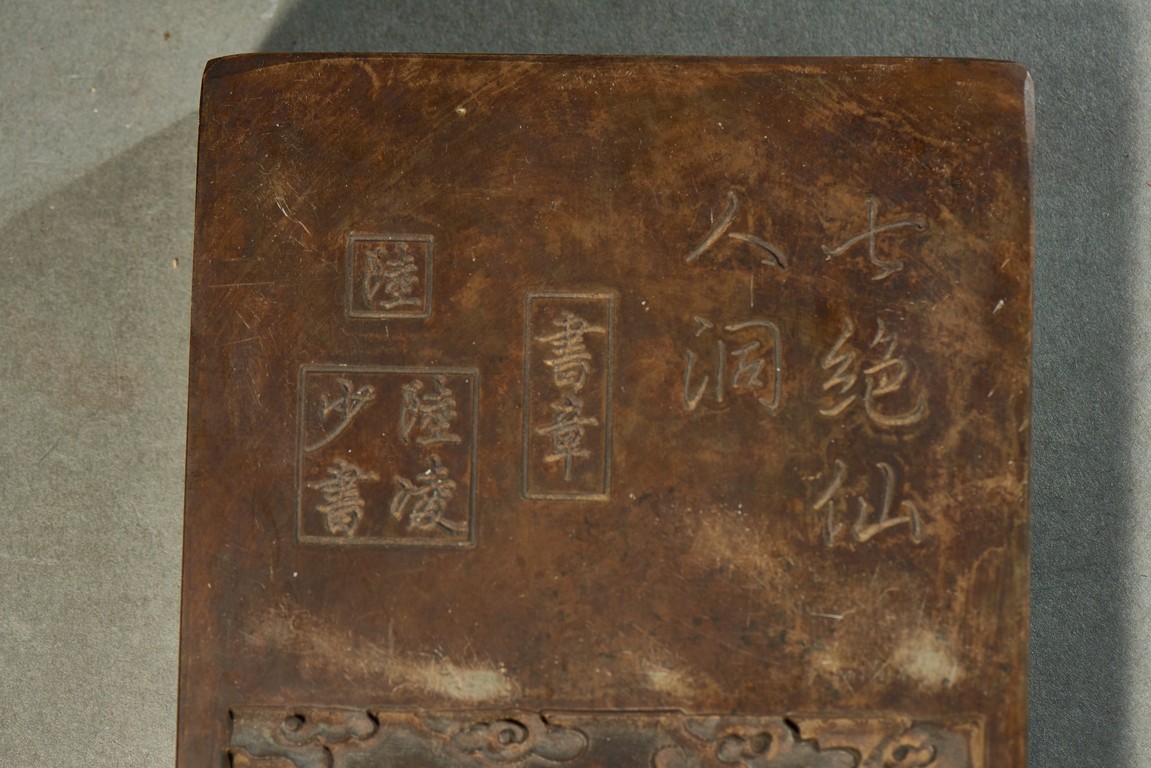 七絶仙
人洞
書章
陸
陸凌
少書